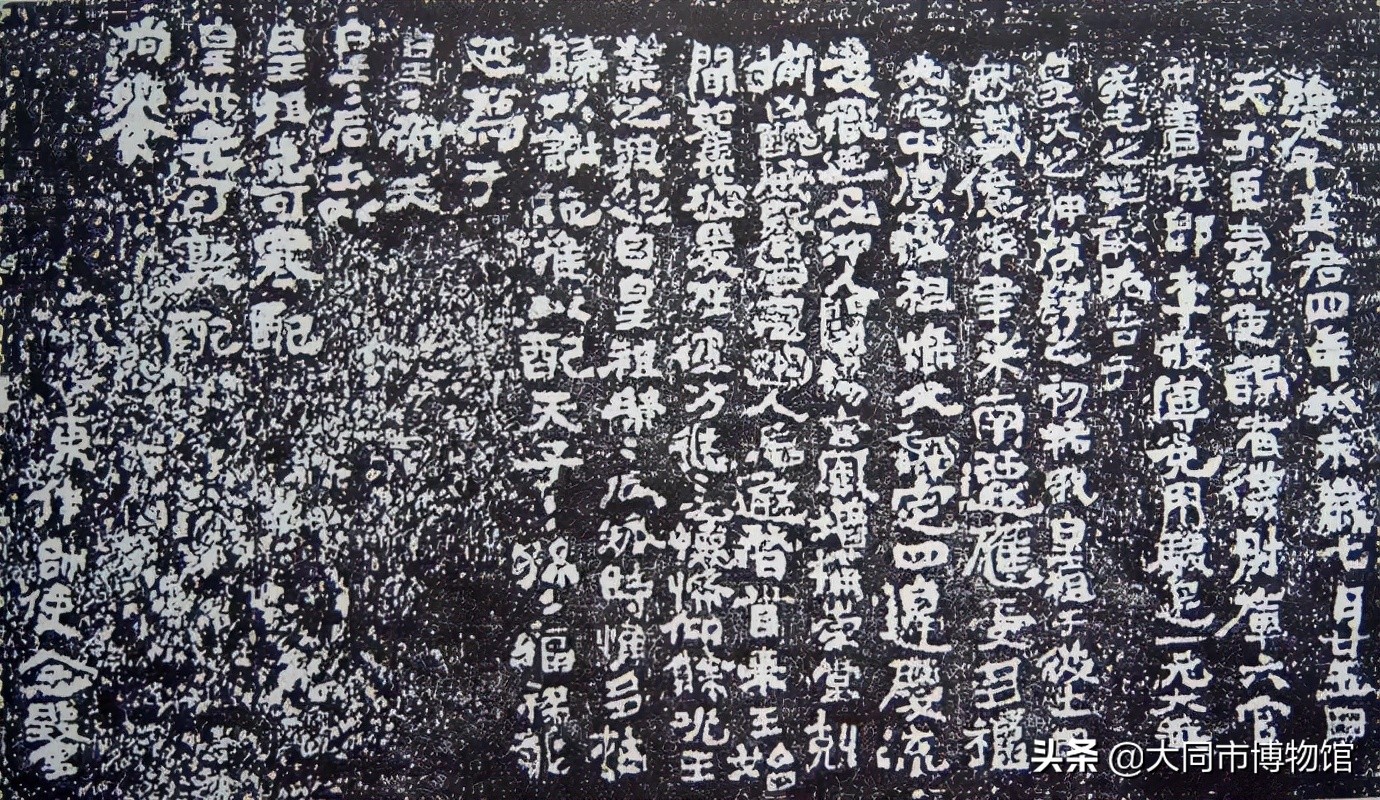 維太平真君四年癸未歲七月廿五日
天子臣燾使謁者僕射庫六官
中書侍郎李敞傅㝹用駿足一元大武
柔毛之牲敢昭告于
皇天之神啟辟之初祐我皇祖于彼土田
歷載億年聿來南遷應受多福
光宅中原惟祖惟父拓定四邊慶流
後胤延及沖人闡揚玄風增構崇堂剋
揃凶醜威暨四荒幽人忘遐稽首來王始
聞舊墟爰在彼方悠〻之懷希仰餘光王
業之興起自皇祖綿〻瓜瓞時惟多祜
歸以謝施推以配天子〻孫〻福祿永
延薦于
皇〻帝天
皇〻后土以
皇祖先可寒配
皇妣先可敦配
尚饗
東作帥使念鑿
头条 @大同市博物馆